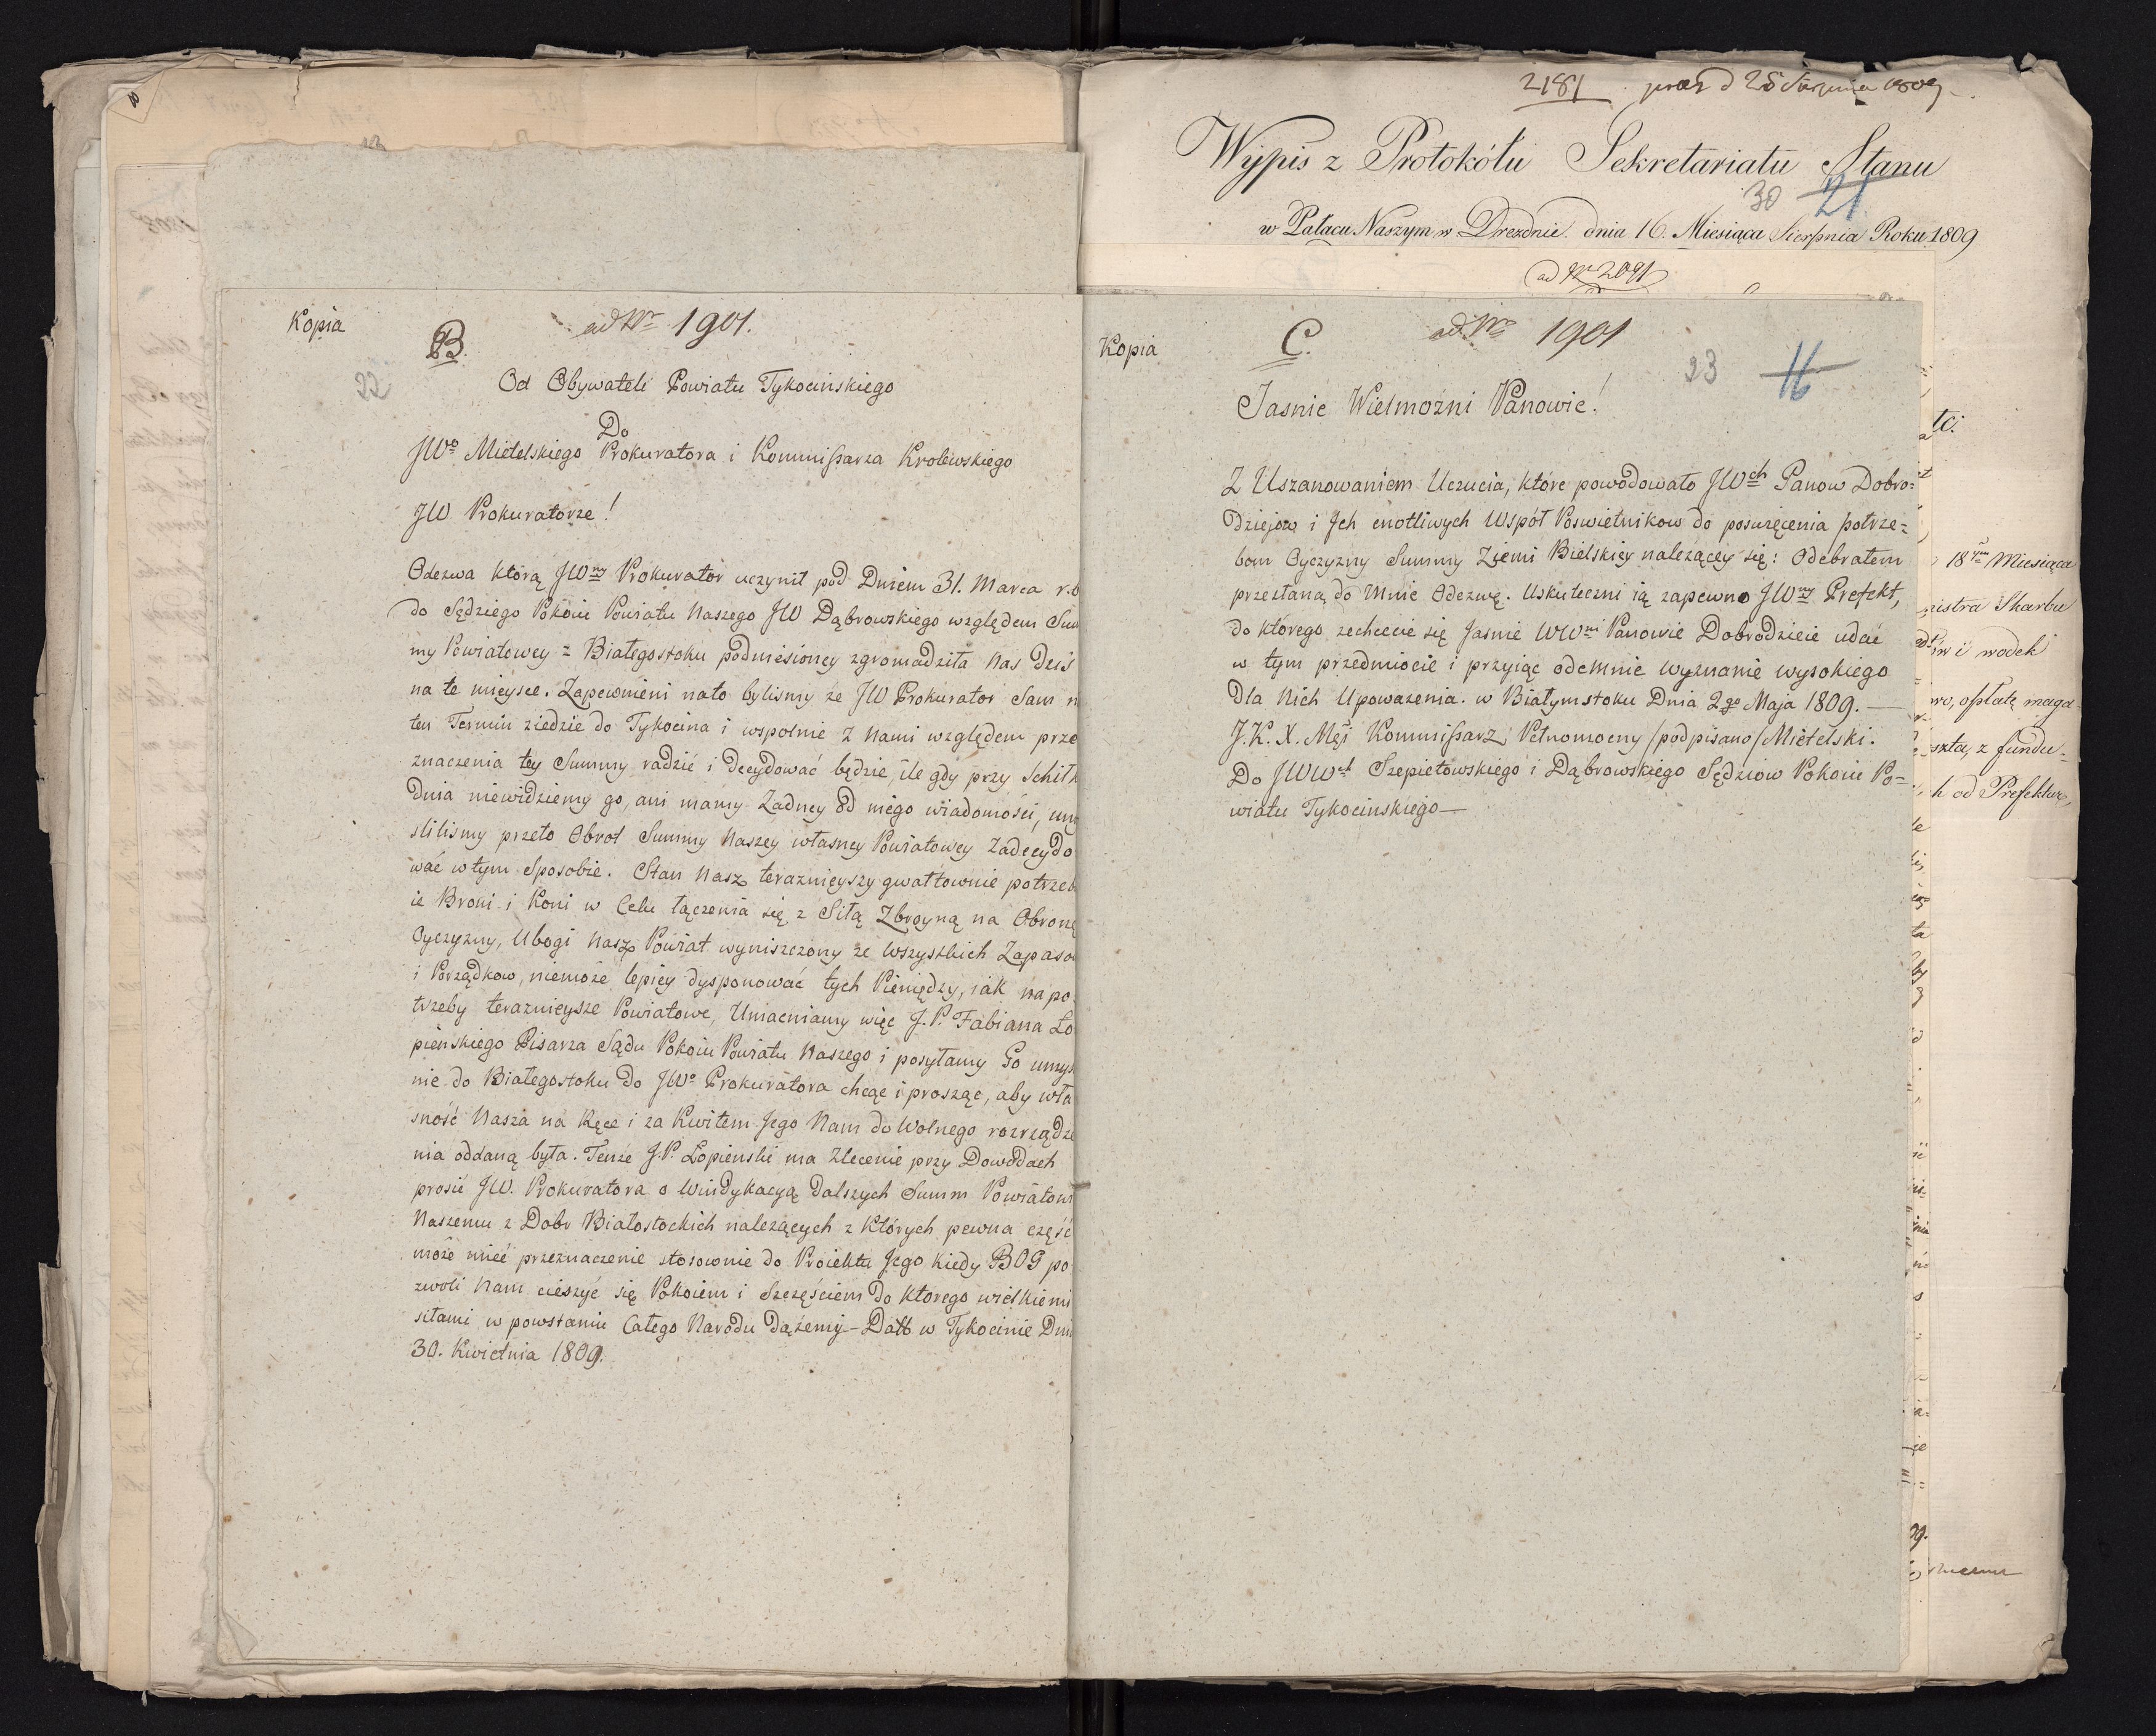 Kopia
B.
ad Nr 1901.
22
Od Obywateli Powiatu Tykocinskiego
Do
JWo Mietelskiego Prokuratora i Kommißarza Krolewskiego
JW Prokuratorze!
Odezwa którą JWny Prokurator uczynił pod Dniem 31. Marca r. b
do Sędziego Pokoiu Powiatu Naszego JW Dąbrowskiego względem Sum
my Powiatowey z Białegostoku podniesioney zgromadziła Nas Dziś
na te mieysce. Zapewnieni nato bylismy ze JW Prokurator Sam n
ten Termin ziedzie do Tykocina i wspolnie z Nami względem prze
znaczenia tey Summy radzić i decydować będzie, ile gdy przy Schiłk
Dnia niewidziemy go, ani mamy Zadney od niego wiadomości, umy
slilismy przeto Obrot Summy Naszey własney Powiatowey Zadecydo
wać w tym Sposobie. Stan Nasz teraznieyszy gwałtownie potrzeb
ie Broni i Koni w Celu łączenia się z Siłą Zbroyną na Obronę
Oyczyzny, Ubogi Nasz Powiat wyniszczony ze Wszystkich Zapaso
i Porządkow, niemoże lepiey dysponować tych Pieniędzy, iak na po
trzeby teraznieysze Powiatowe, Umacniamy więc J. P. Fabiana Ło
pieńskiego Pisarza Sądu Pokoiu Powiatu Naszego i posyłamy Go umyś
nie do Białegostoku do JWo Prokuratora chcąc i prosząc, aby wła
sność Nasza na Ręce i za Kwitem Jego Nam do Wolnego rozrządze
nia oddaną była. Tenże J. P. Łopienski ma Zlecenie przy Dowodach
prosić JW. Prokuratora o Windykacyą Dalszych Summ Powiatow
Naszemu z Dobr Białostockich nalezących z Których pewna część
może mieć przeznaczenie stosownie do Proiektu Jego Kiedy BOG po
zwoli Nam cieszyć się Pokoiem i Szczęściem do Ktorego wielkiemi
siłami w powstaniu Całego Narodu dążemy – Datt w Tykocinie Dni
30. Kwietnia 1809.
2181 praes d 25 Sierpnia 1809
Wypis z Protokółu Sekretariatu Stanu
30 21
w Pałacu Naszym w Dreznie dnia 16. Miesiąca Sierpnia Roku 1809
ad Nr 2091
Kopia
C.
ad Nr 1901
23 16
Jasnie Wielmożni Panowie!
Z Uszanowaniem Uczucia, które powodowało JWch Panow Dobro=
dziejow i Jch cnotliwych Wspoł Powietnikow do poswięcenia potrze=
bom Oyczyzny Summy Ziemi Bielskiey nalezącey się: Odebrałem
przesłaną do Mnie Odezwę. Uskuteczni ią zapewno JWny Prefekt,
do którego zechcecie się Jasnie WWni Panowie Dobrodzieie udać
w tym przedmiocie i przyiąc odemnie wyznanie wysokiego
Dla Nich Upowazenia. w Białymstoku Dnia 2go Maja 1809. —
J. K. X. Męi Kommißarz Pełnomocny /podpisano/ Mietelski.
Do JWWch Szepietowskiego i Dąbrowskiego Sędziow Pokoiu Po=
wiatu Tykocinskiego —
tc.
18 Miesiąca
nistra Skarbu
piw i wodek
wo, opłatę maga
szta, z fundu=
h od Prefektur,